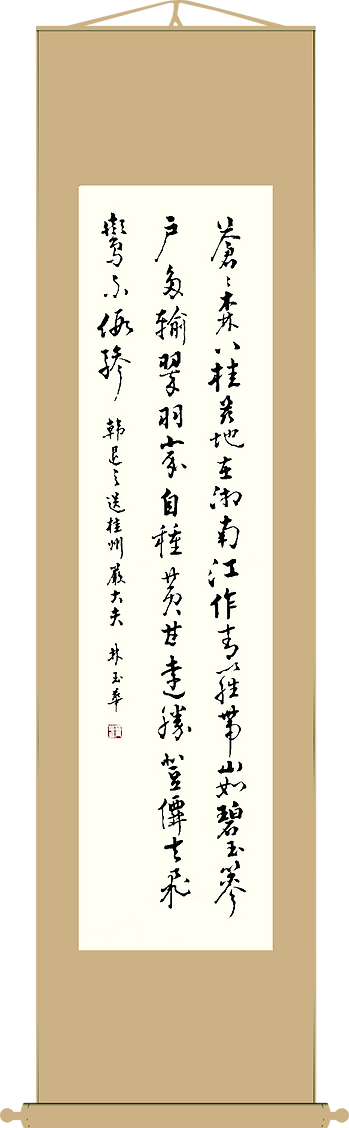 蒼々森八桂茲地在湘南江作青羅帶山如碧玉篸
戶多輸翠羽家自種黃甘遠勝登僊去飛
鸞不假驂
韓退之送桂州嚴大夫 林玉華